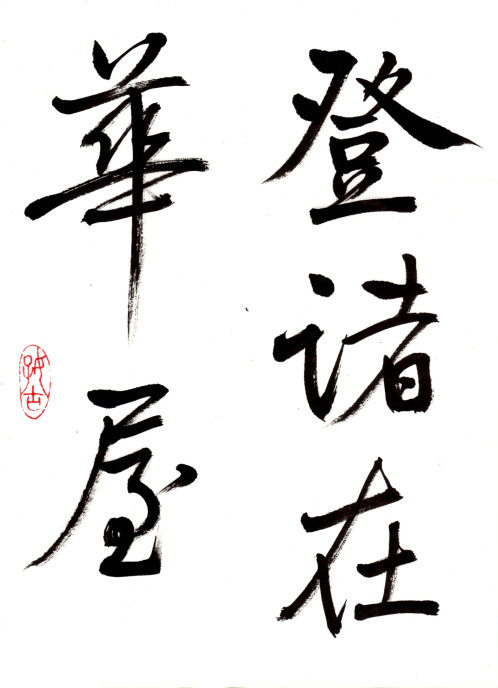 登诸在
華屋